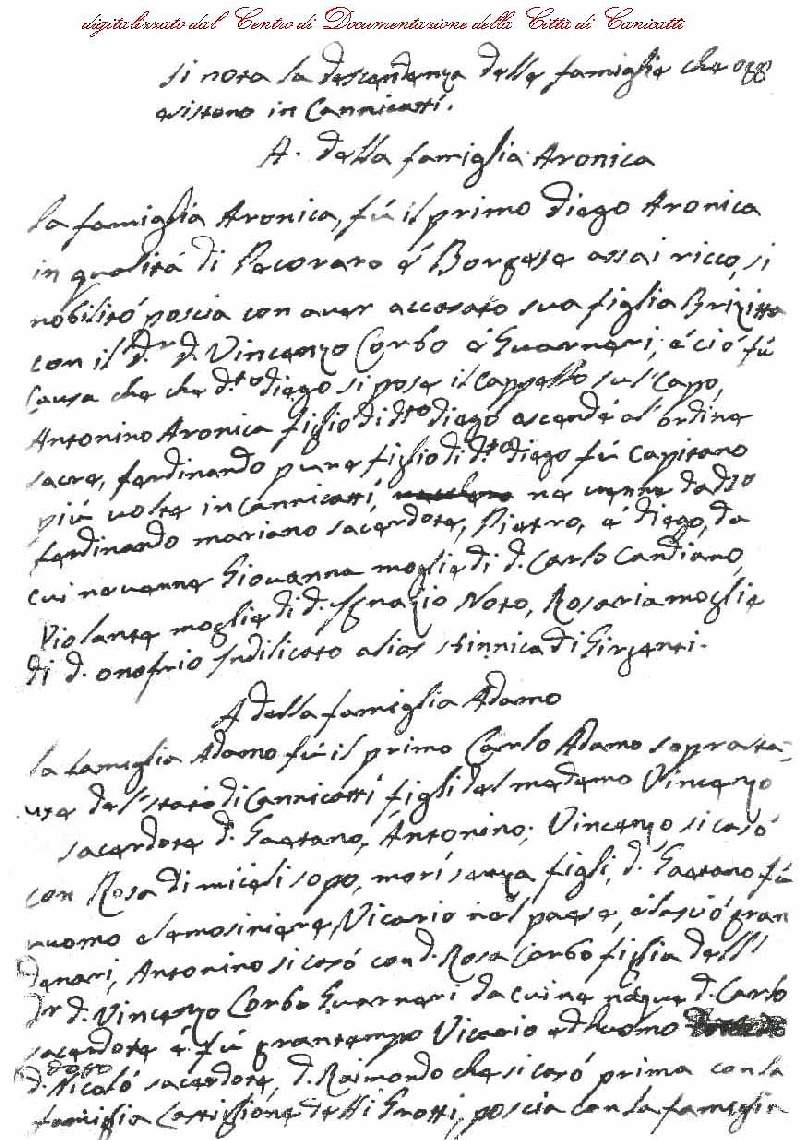 digitalizzato dal Centro di Documentazione della Città di Canicattì
si nota la descendenza delle famiglie che oggi
esistono in Cannicattì.
A. della famiglia Aronica
la famiglia Aronica, fù il primo Diego Aronica
in qualità di Pecoraro e Borgese assai ricco, si
nobilitò poscia con aver accasato sua figlia Brizitta
con il Dr. d. Vincenzo Corbo e Guarneri; e ciò fù
causa che che d.to Diego si pose il Cappello sul capo,
Antonino Aronica figlio di d.to Diego ascende al'ordine
sacre, ferdinando pure figlio di d.to Diego fù Capitano
più volte in Cannicattì, ne venne da d.to
ferdinando mariano sacerdote, Pietro, e Diego, da
cui ne venne Giovanna moglie di d. Carlo Candiano,
Violante moglie di d. Ignazio Noto, Rosaria moglie
di d. onofrio Indilicato alias stinnica di Girgenti.
A della famiglia Adamo
la fameglia Adamo fù il primo Carlo Adamo soprata-
dell'stato di Cannicattì figli del medemo Vincenzo
sacerdote d. Gaetano, Antonino; Vincenzo si casò
con Rosa di miceli sopo, morì senza figli, d. Gaetano fù
uuomo elemosiniere, Vicario nel paese, e lasciò gran
denari, Antonino si casò con d. Rosa Corbo figlia dell'
Dr d. Vincenzo Corbo Guarneri da cui ne naque d. Carlo
sacerdote e fù gran tempo Vicario ed huomo
dotto
d. Nicolò sacerdote, d. Raimondo che si casò prima con la
famiglia Castiglione delli Grotti, poscia con la fameglia